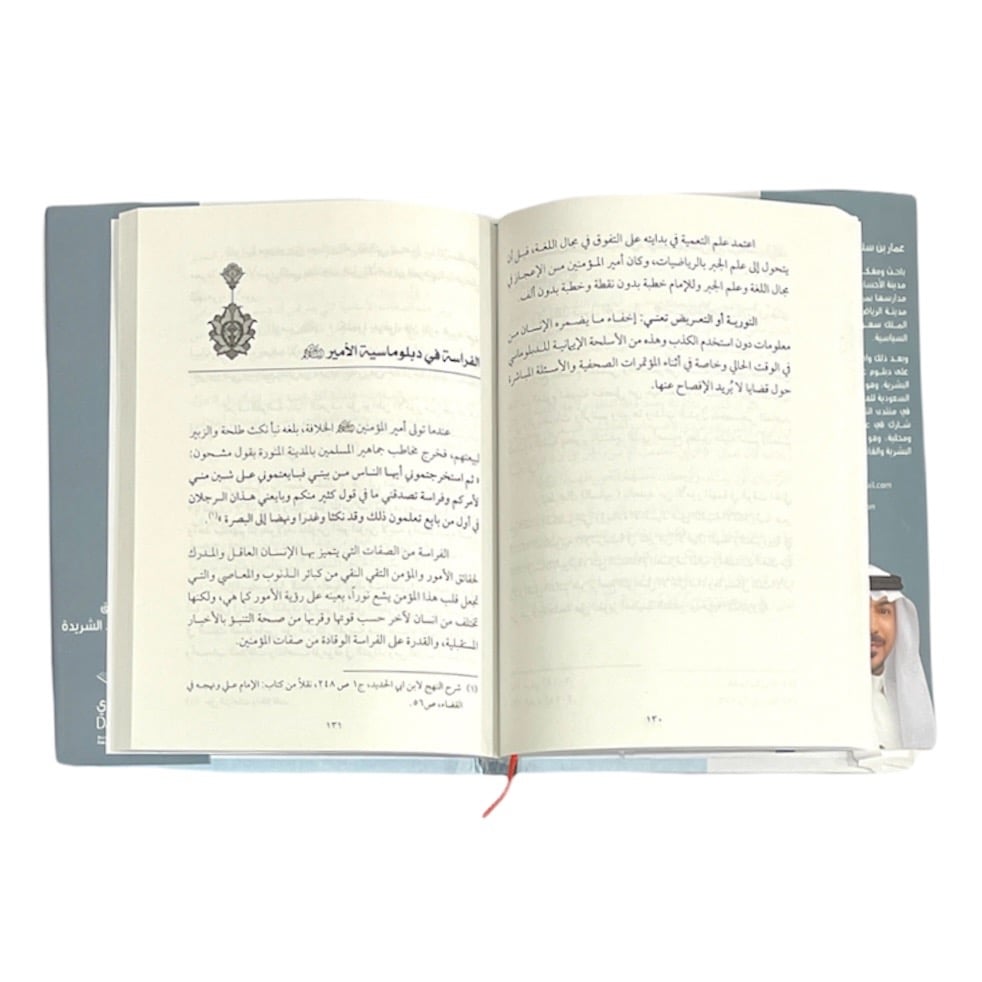 اعتمد علم التعمية في بدايته على التفوق في مجال اللغة، قبل أن
يتحول إلى علم الجبر بالرياضيات، وكان أمير المؤمنين من الإعجاز في
مجال اللغة وعلم الجبر وللإمام خطبة بدون نقطة وخطبة بدون ألف.
التورية أو التعريض تعني: إخفاء ما يضمره الإنسان من
معلومات دون استخدم الكذب وهذه من الأسلحة الإيمانية للدبلوماسي
في الوقت الحالي وخاصة في أثناء المؤتمرات الصحفية والأسئلة المباشرة
حول قضايا لا يُريد الإفصاح عنها.
١٣٠
الفراسة في دبلوماسية الأمير
عندما تولى أمير المؤمنين الخلافة، بلغه نبأ نكث طلحة والزبير
لبيعتهم، فخرج مخاطب جماهير المسلمين بالمدينة المنورة بقول مشحون:
« ثم استخرجتموني أيها الناس من بيتي فبايعتموني على شين مني
لأمركم وفراسة تصدقني ما في قول كثير منكم وبايعني هذان الرجلان
في أول من بايع تعلمون ذلك وقد نكثا وغدرا ونهضا إلى البصرة »(١).
الفراسة من الصفات التي يتميز بها الإنسان العاقل والمدرك
لحقائق الأمور والمؤمن التقي النقي من كبائر الذنوب والمعاصي والتي
تجعل قلب هذا المؤمن يشع نوراً، يعينه على رؤية الأمور كما هي، ولكنها
تختلف من انسان لآخر حسب قوتها وقربها من صحة التنبؤ بالأخبار
المستقبلية، والقدرة على الفراسة الوقادة من صفات المؤمنين.
(١) شرح النهج لابن ابي الحديد، ج١ ص ٢٤٨، نقلاً من كتاب: الإمام علي ونهجه في
القضاء، ص٥٦.
١٣١
عمار بن
باحث ومفكر
مدينة الأحسا
مدارسها
مدينة الرياض
الملك سعـ
السياسية.
وبعد ذلك
على دبلوم
البشرية، وهو
السعودية
في منتدى
شارك في
ومحلية، وهو
البشرية
.com
الشريدة